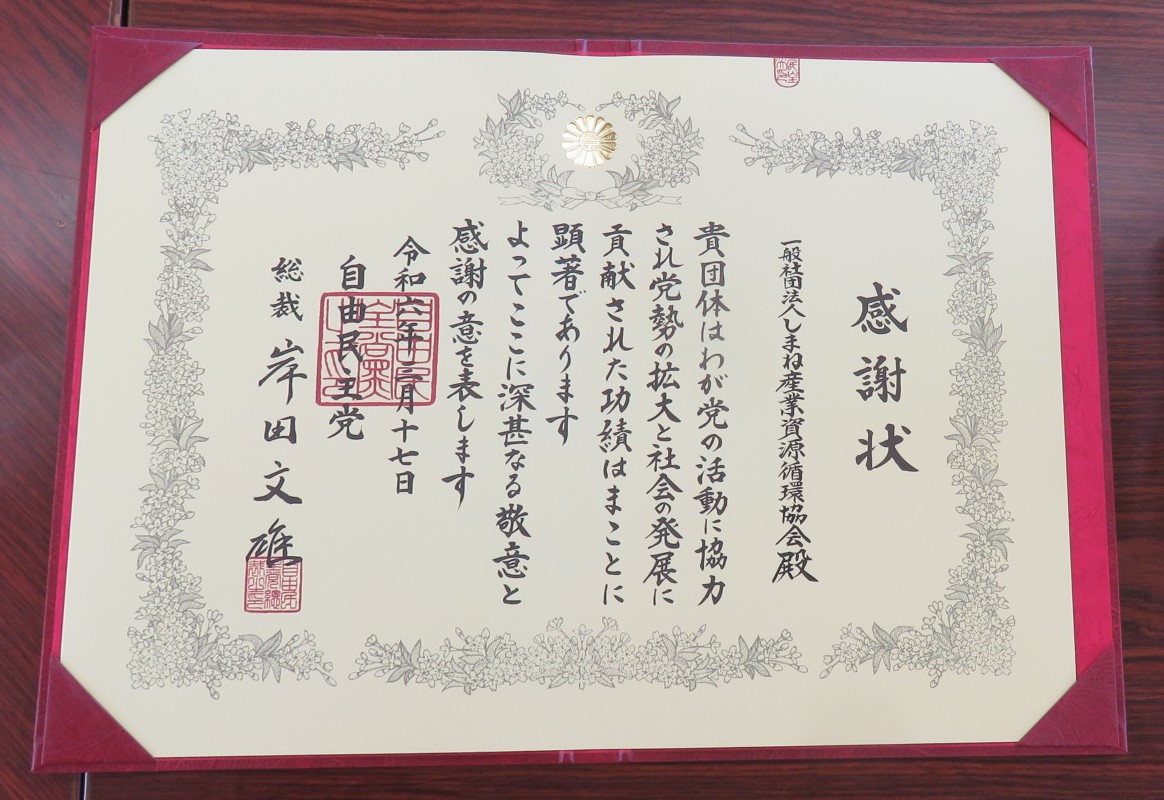 感謝状
一般社団法人しまね産業資源循環協会殿
貴団体はわが党の活動に協力
され党勢の拡大と社会の発展に
貢献された功績はまことに
顕著であります
よってここに深甚なる敬意と
感謝の意を表します
令和六年三月十七日
自由民主党
総裁 岸田文雄